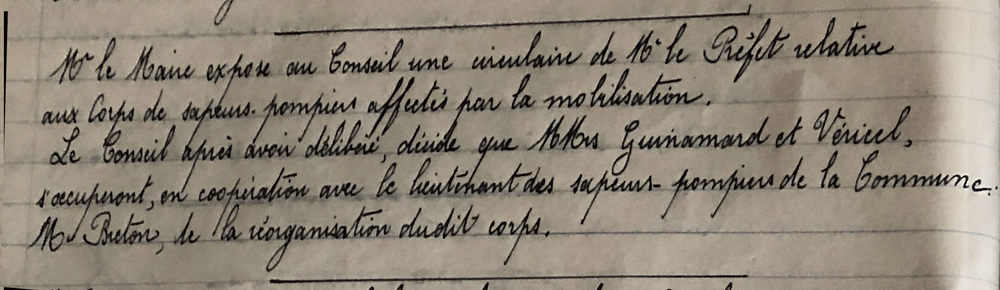 Mr le Maire expose au Conseil une circulaire de Mr le Préfet relative
aux Corps de sapeurs-pompiers affectés par la mobilisation.
Le Conseil après avoir délibéré, décide que MMrs Guinamard et Véricel,
s'occuperont, en coopération avec le lieutenant des sapeurs-pompiers de la Commune.
Mr Breton, de la réorganisation dudit corps.